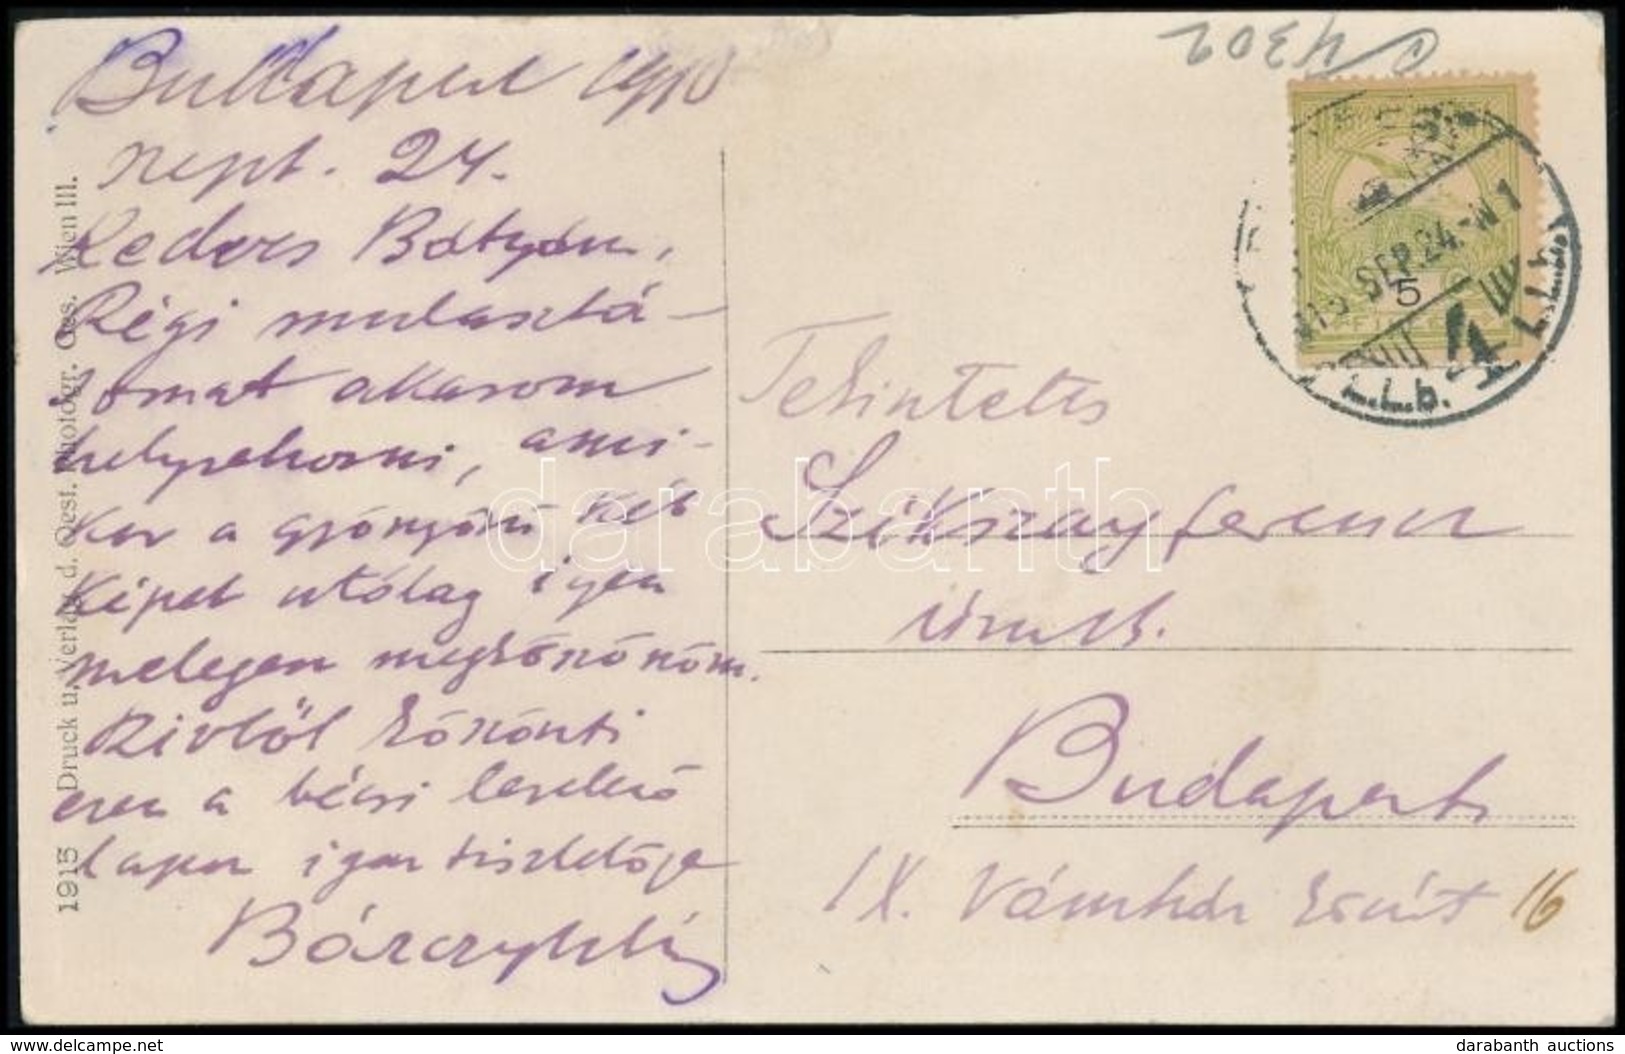 Budapest 1915
szept. 24.
Kedves Bátyám,
Régi mulasztá-
somat akarom
helyrehozni, ami-
kor a gyönyörű két
képet utólag igen
melegen megköszönöm.
Szivből köszönti
ezen a bécsi levelező
lapon igaz tisztelője
Bárczyistván
1915 Druck u. Verlag d. Oest. Photogr. Ges. Wien III.
4302
915 SEP. 24.
5
4
Tekintetes
Szikszay Ferencz
úrnak.
Budapest.
IX. Vámház körút 16
darabanth
darabanth auctions
www.delcampe.net